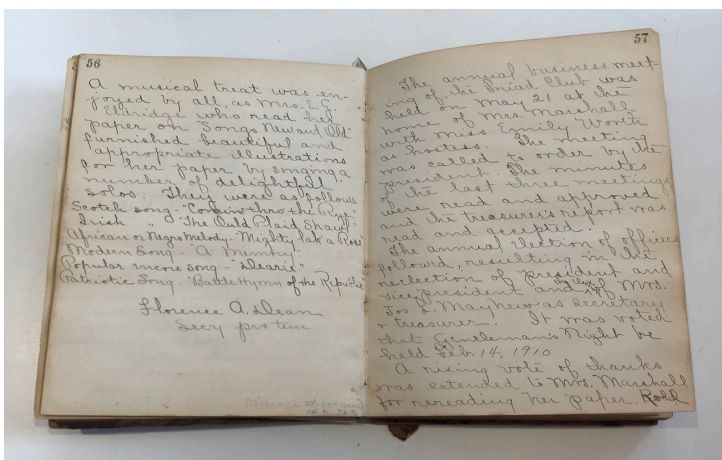 56
A musical treat was en-
joyed by all, as Mrs. E. G.
Eldridge who read her
paper on "Songs New and Old"
furnished beautiful and
appropriate illustrations
for her paper by singing a
number of delightful
solos. They were as follows
Scotch song - "Comin' thro the Rye"
Irish " - "The Ould Plaid Shawl"
African or Negro Melody - Mighty lak a Rose
Modern Song - "A Memory"
Popular encore song - "Dearie"
Patriotic Song - "Battle Hymn of the Republic
Florence A. Dean
Secy pro tem
57
The annual business meet-
ing of the Triad Club was
held on May 21 at the
home of Mrs. Marshall
with Miss Emily Worth
as hostess. The meeting
was called to order by the
president. The minutes
of the last three meetings
were read and approved
and the treasurer's report was
read and accepted.
The annual election of officers
followed, resulting in the
reelection of president and
vice president and of Mrs.
Jos. S. Mayhew as secretary
& treasurer. It was voted
that Gentleman's Night be
held Feb. 14, 1910
A rising vote of thanks
was extended to Mrs. Marshall
for rereading her paper. Roll